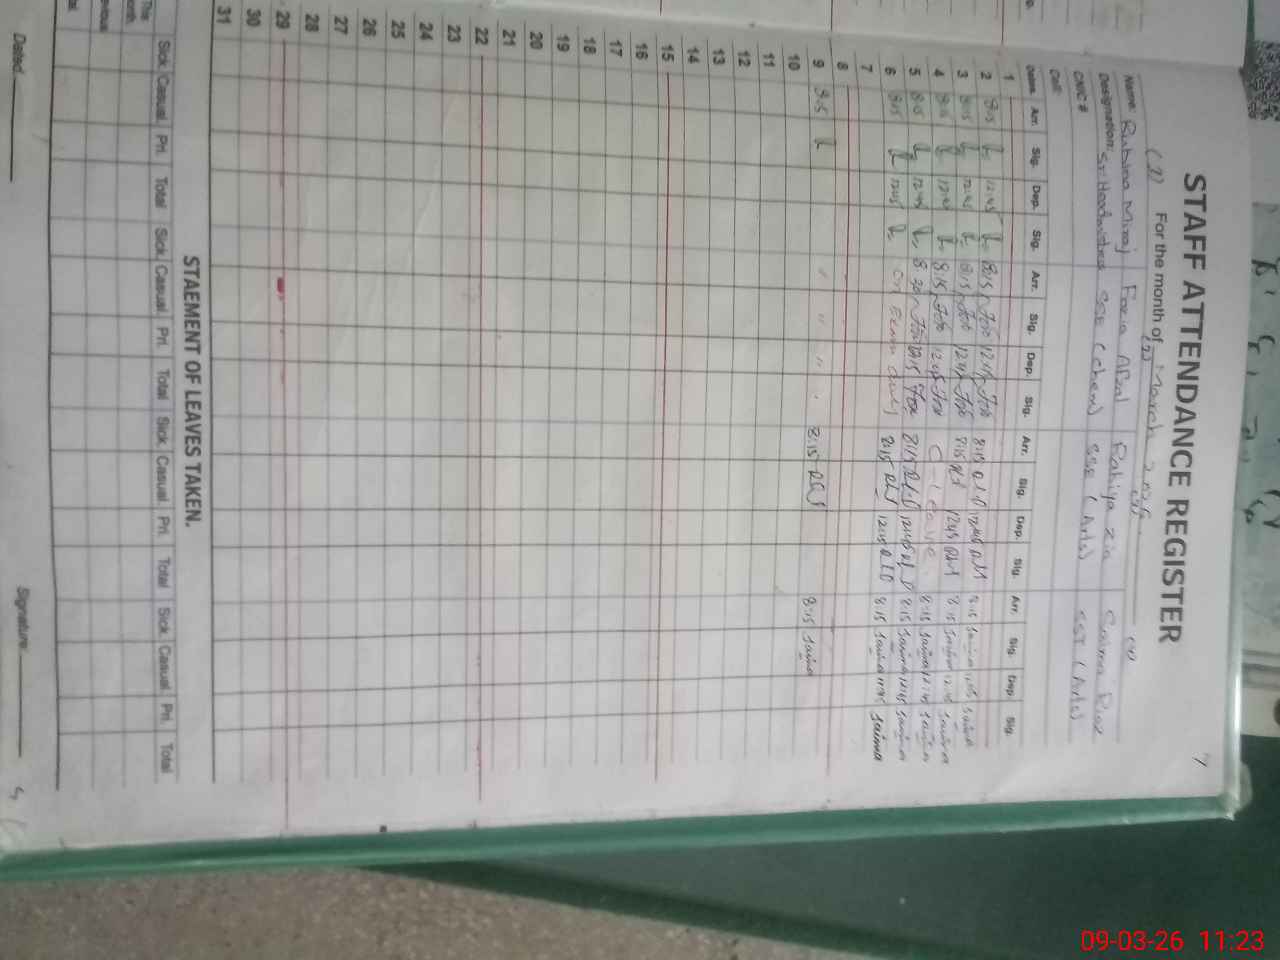 7
STAFF ATTENDANCE REGISTER
For the month of March 2026.
(1) (2) (3) (4)
Name: Rubina Miraj Fozia Afzal Rahiya Zia Saima Riaz
Designation: Sr. Headmistress SSE (Chem) SSE (Arts) SST (Arts)
CNIC #
Cell:
Dates. Arr. Sig. Dep. Sig. Arr. Sig. Dep. Sig. Arr. Sig. Dep. Sig. Arr. Sig. Dep. Sig.
1
2 8:15 12:45 8:15 12:45 8:15 12:45 8:15 Saima 12:45 Saima
3 8:15 12:45 8:15 12:45 8:15 12:45 8:15 Saima 12:45 Saima
4 8:15 12:45 8:15 12:45 C-leave 8:15 Saima 12:45 Saima
5 8:15 12:45 8:30 12:15 8:15 12:45 8:15 Saima 12:45 Saima
6 8:15 12:45 on Exam duty 8:15 12:45 8:15 Saima 12:45 Saima
7
8
9 8:15 " " " " 8:15 8:15 Saima
10
11
12
13
14
15
16
17
18
19
20
21
22
23
24
25
26
27
28
29
30
31
STAEMENT OF LEAVES TAKEN.
Sick Casual. Pri. Total Sick. Casual. Pri. Total Sick. Casual. Pri. Total Sick Casual Pri. Total
This
Dated: Signature:
09-03-26 11:23